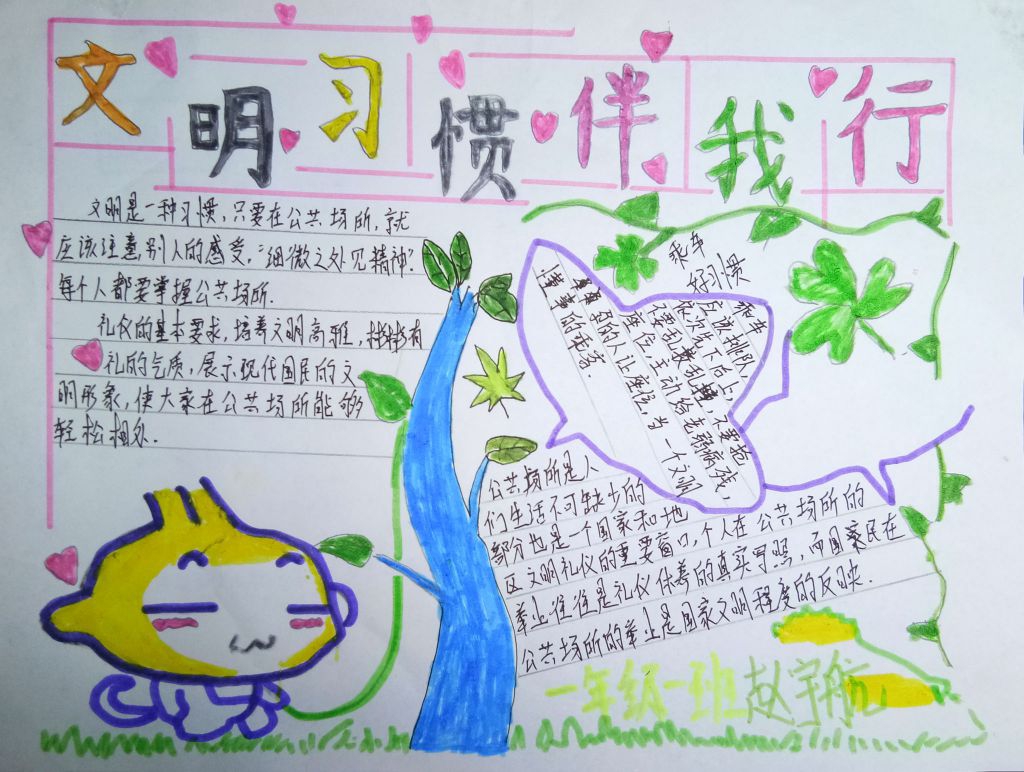 文明习惯伴我行
文明是一种习惯,只要在公共场所,就
应该注意别人的感受,“细微之处见精神”.
每个人都要掌握公共场所.
礼仪的基本要求,培养文明高雅,彬彬有
礼的气质,展示现代国民的文
明形象,使大家在公共场所能够
轻松相处.
乘车
好习惯
乘车
应该排队
依次先下后上,
不要乱挤乱撞,不要抢
座位,主动给老弱病残,
的人让座位,当一个文明
懂事的乘客.
公共场所是人
们生活不可缺少的
部分也是一个国家和地
区文明礼仪的重要窗口,个人在公共场所的
举止往往是礼仪休养的真实写照,而国家民在
公共场所的举止是国家文明程度的反映.
一年级一班赵宇航